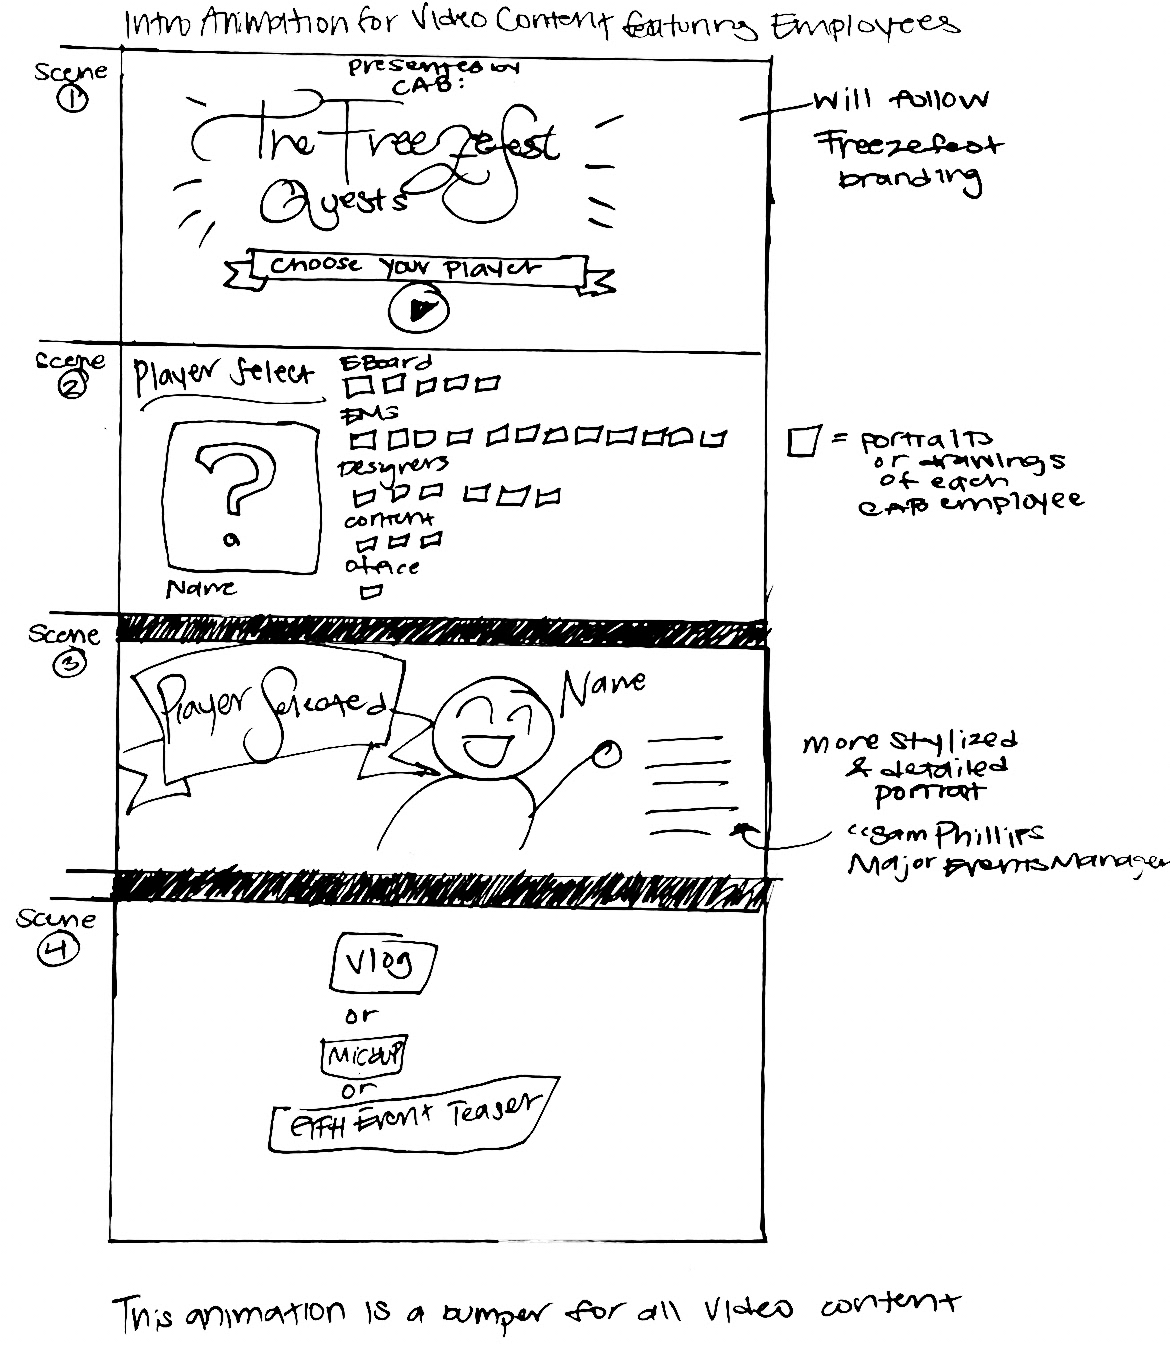 Intro Animation for Video Content featuring Employees
Scene
1
presented by
CAB:
The Freezefest
Quests
choose your player
will follow
Freezefest
branding
Scene
2
Player Select
EBoard
EMS
Designers
content
office
?
Name
= portraits
or drawings
of each
CAB employee
Scene
3
Player Selected
Name
more stylized
& detailed
portrait
"Sam Phillips
Major Events Manager
Scene
4
Vlog
or
MicdUP
or
Event Teaser
This animation is a bumper for all video content